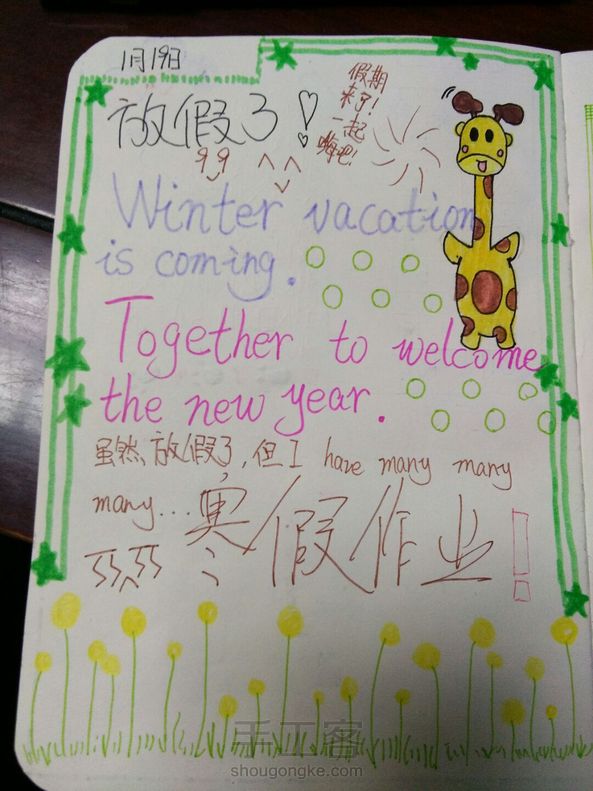 1月19日
放假了!
假期
来了!
一起
嗨吧!
Winter vacation
is coming.
Together to welcome
the new year.
虽然放假了,但I have many many
many...寒假作业!
手工客
shougongke.com